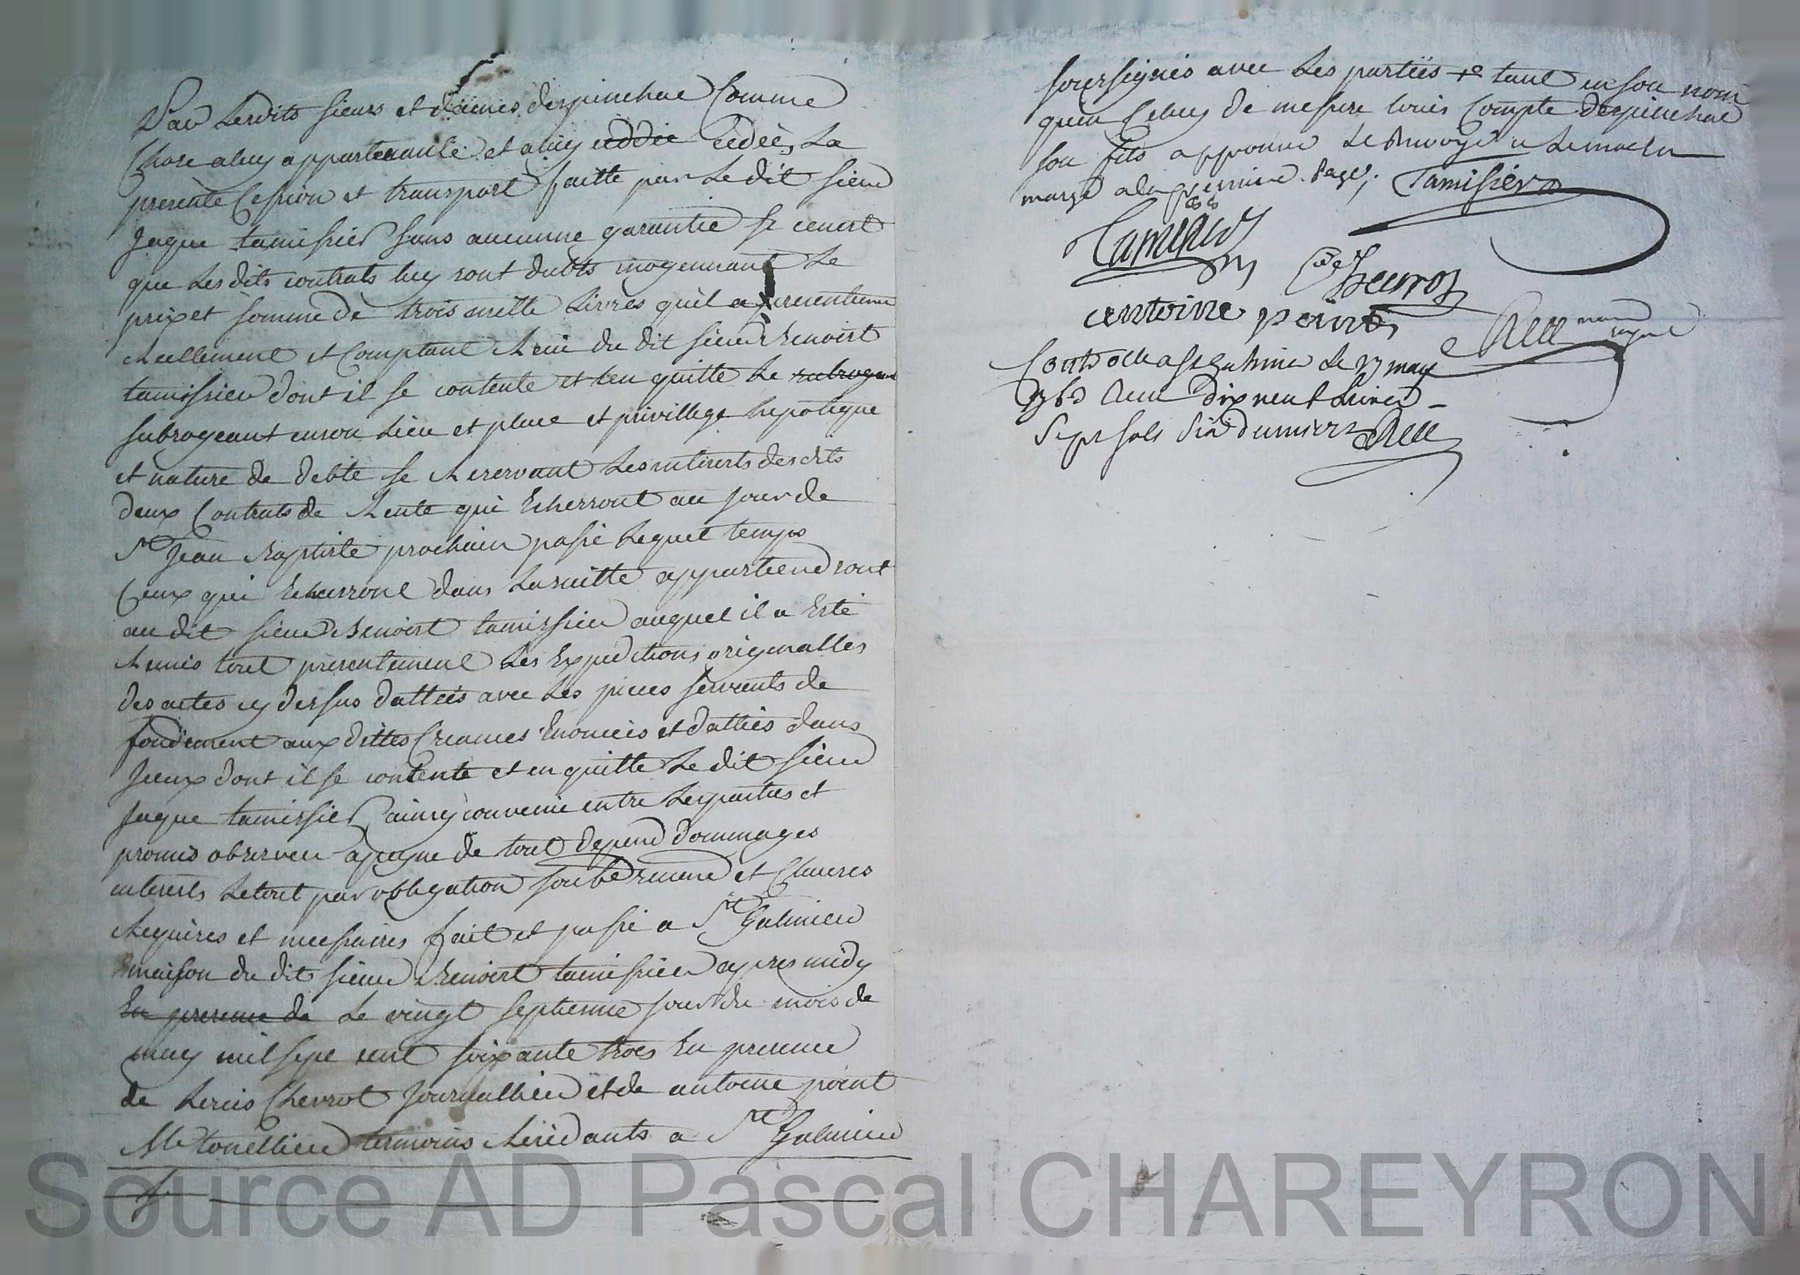 Par lesdits sieurs et dames despinchac Comme
Chose a luy appartenante et a luy cedde cedée, La
presente Cession et transport faitte par le dit sieur
Jaque tamissier sans aucunne garantie se cenort
que les dits contrats luy sont dubts moyennant Le
prix et somme de trois mille Livres quil a presentement
reellement et Comptant Receü du dit sieur Benoist
tamissier dont il se contente et len quitte Le subrogeant
subrogeant en son Lieu et place et privillege hepoteque
et nature de debte se Reservant Les interests des dits
deux Contrats de Rente qui Echerront au jour de
St Jean Baptiste prochain passé Lequel temps
Ceux qui Echerront dans La suitte appartiendront
au dit sieur Benoist tamissier auquel il a Esté
Remis tout presentement Les Expeditions originalles
des actes cy dessus dattées avec Les pieces servents de
fondement aux dittes Creances Enoncées et dattés dans
Jceux dont il se contente et en quitte Le dit sieur
Jaque tamissier ainsy convenu entre Les parties et
promis observer a peyne de tout depend dommages
interests Le tout par obligation soub et Clauses
Requises et necessaires fait et passé a St Galmier
maison du dit sieur Benoist tamissier apres midy
En presence de Le vingt septienne jour du mois de
may mil sept cent soixante trois En presence
de Louis Chevrot Journallier et de antoine point
Me tonellier temoins Residants a St Galmier
soussignés avec Les partiës +e tant en son nom
quen Celuy de messire Louis Compte despinchac
son fils approuvé Le Renvoye a Le
marge a la premiere page; Tamisier
Tamisier
Chevrot
antoine point
Rell
Controllé a St Galmier Le 27 may
1763 Receu dix neuf Livres
Sept sols Six deniers Rell
Source AD Pascal CHAREYRON